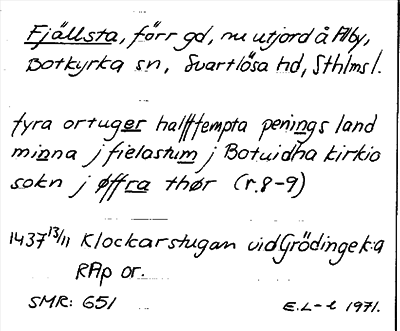 Fjällsta, förr gd, nu utjord å Alby,
Botkyrka sn, Svartlösa hd, Sthlms l.
fyra ortuger halffempta penings land
minna j fielastum j Botuidha kirkio
sokn j øffra thør (r. 8-9)
1437 13/11 Klockarstugan vid Grödinge k:a
RAp or.
SMR: 651
E.L-l 1971.